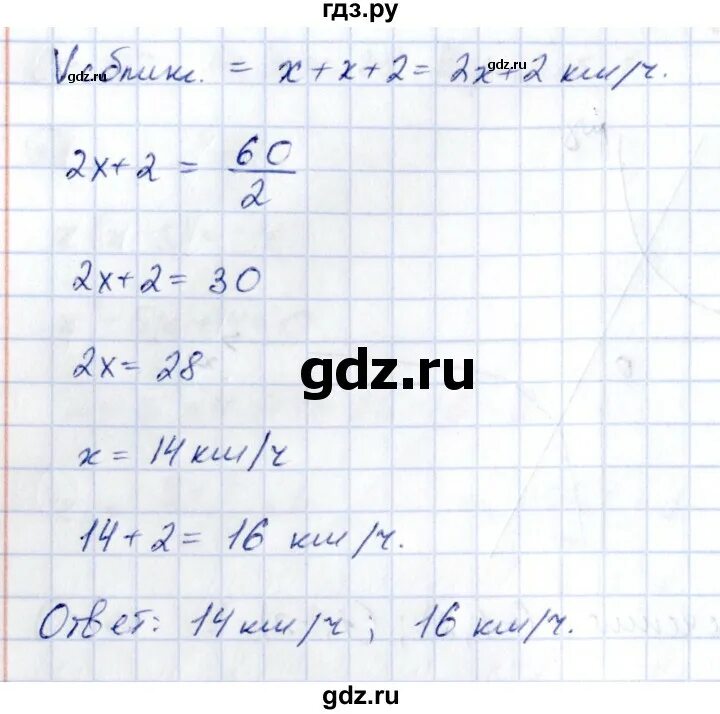 гдз.ру
Vсближ. = x + x + 2 = 2x + 2 км/ч.
gdz.ru gdz.ru
2x + 2 = 60/2
2x + 2 = 30
2x = 28
gdz.ru
x = 14 км/ч
14 + 2 = 16 км/ч.
Ответ: 14 км/ч; 16 км/ч.
gdz.ru